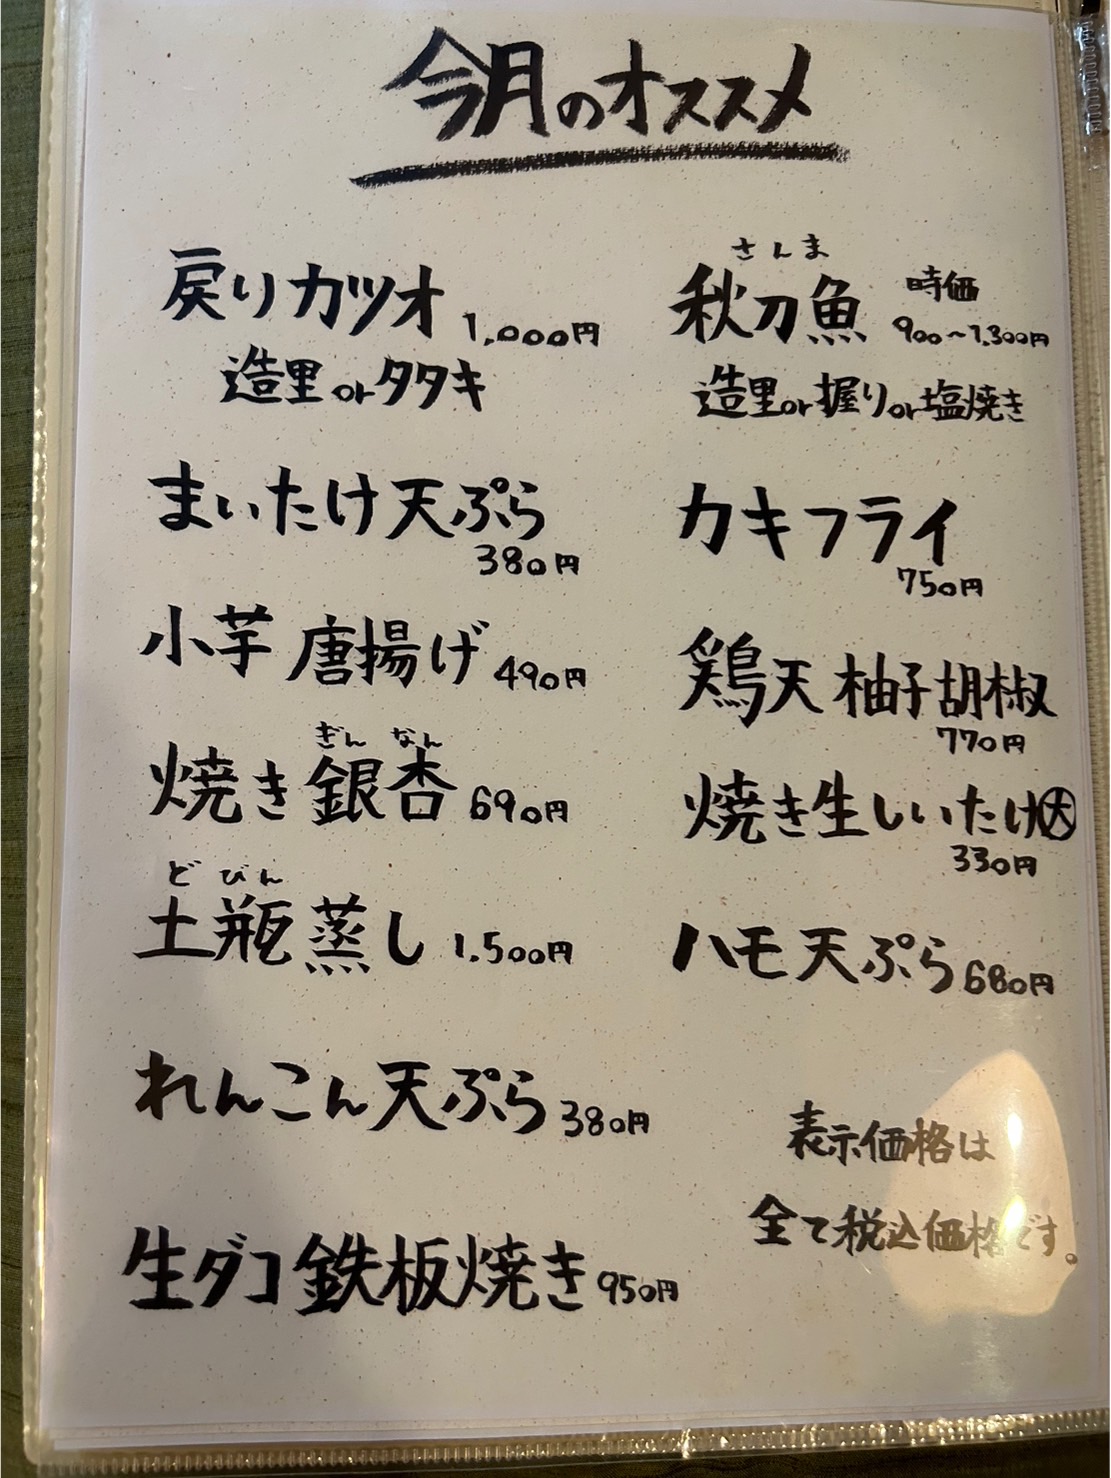 今月のオススメ
戻りカツオ 1,000円
造里orタタキ
まいたけ天ぷら
380円
小芋 唐揚げ 490円
ぎん なん
焼き銀杏 690円
ど びん
土瓶蒸し 1.500円
れんこん天ぷら 380円
生ダコ鉄板焼き 950円
さんま
秋刀魚 時価
900〜1,300円
造里or握りor塩焼き
カキフライ
750円
鶏天 柚子胡椒
770円
焼き生しいたけ㊛
330円
ハモ天ぷら 680円
表示価格は
全て税込価格です。